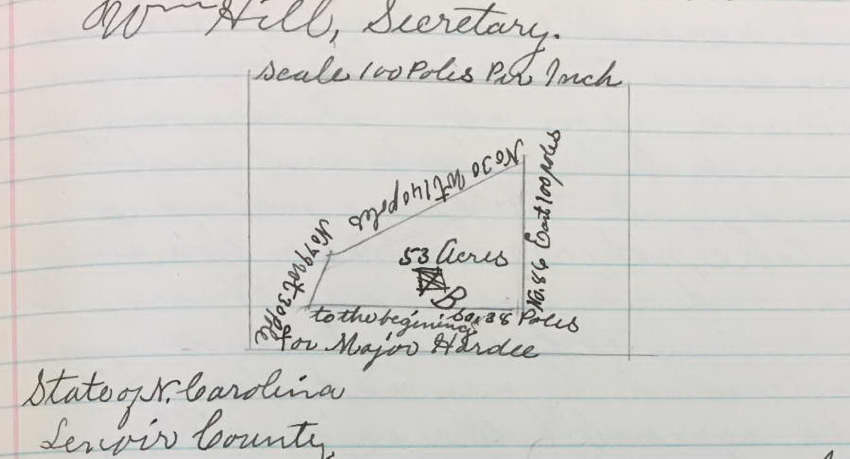 Wm Hill, Secretary.
Scale 100 Poles Per Inch
No 30 Wt 140 poles
No. 86 East 100 poles
No 79 Wt 30 Ple
53 Acres
B
So. 38 Poles
to the begining
for Major Hardee
State of N. Carolina
Lenoir County,